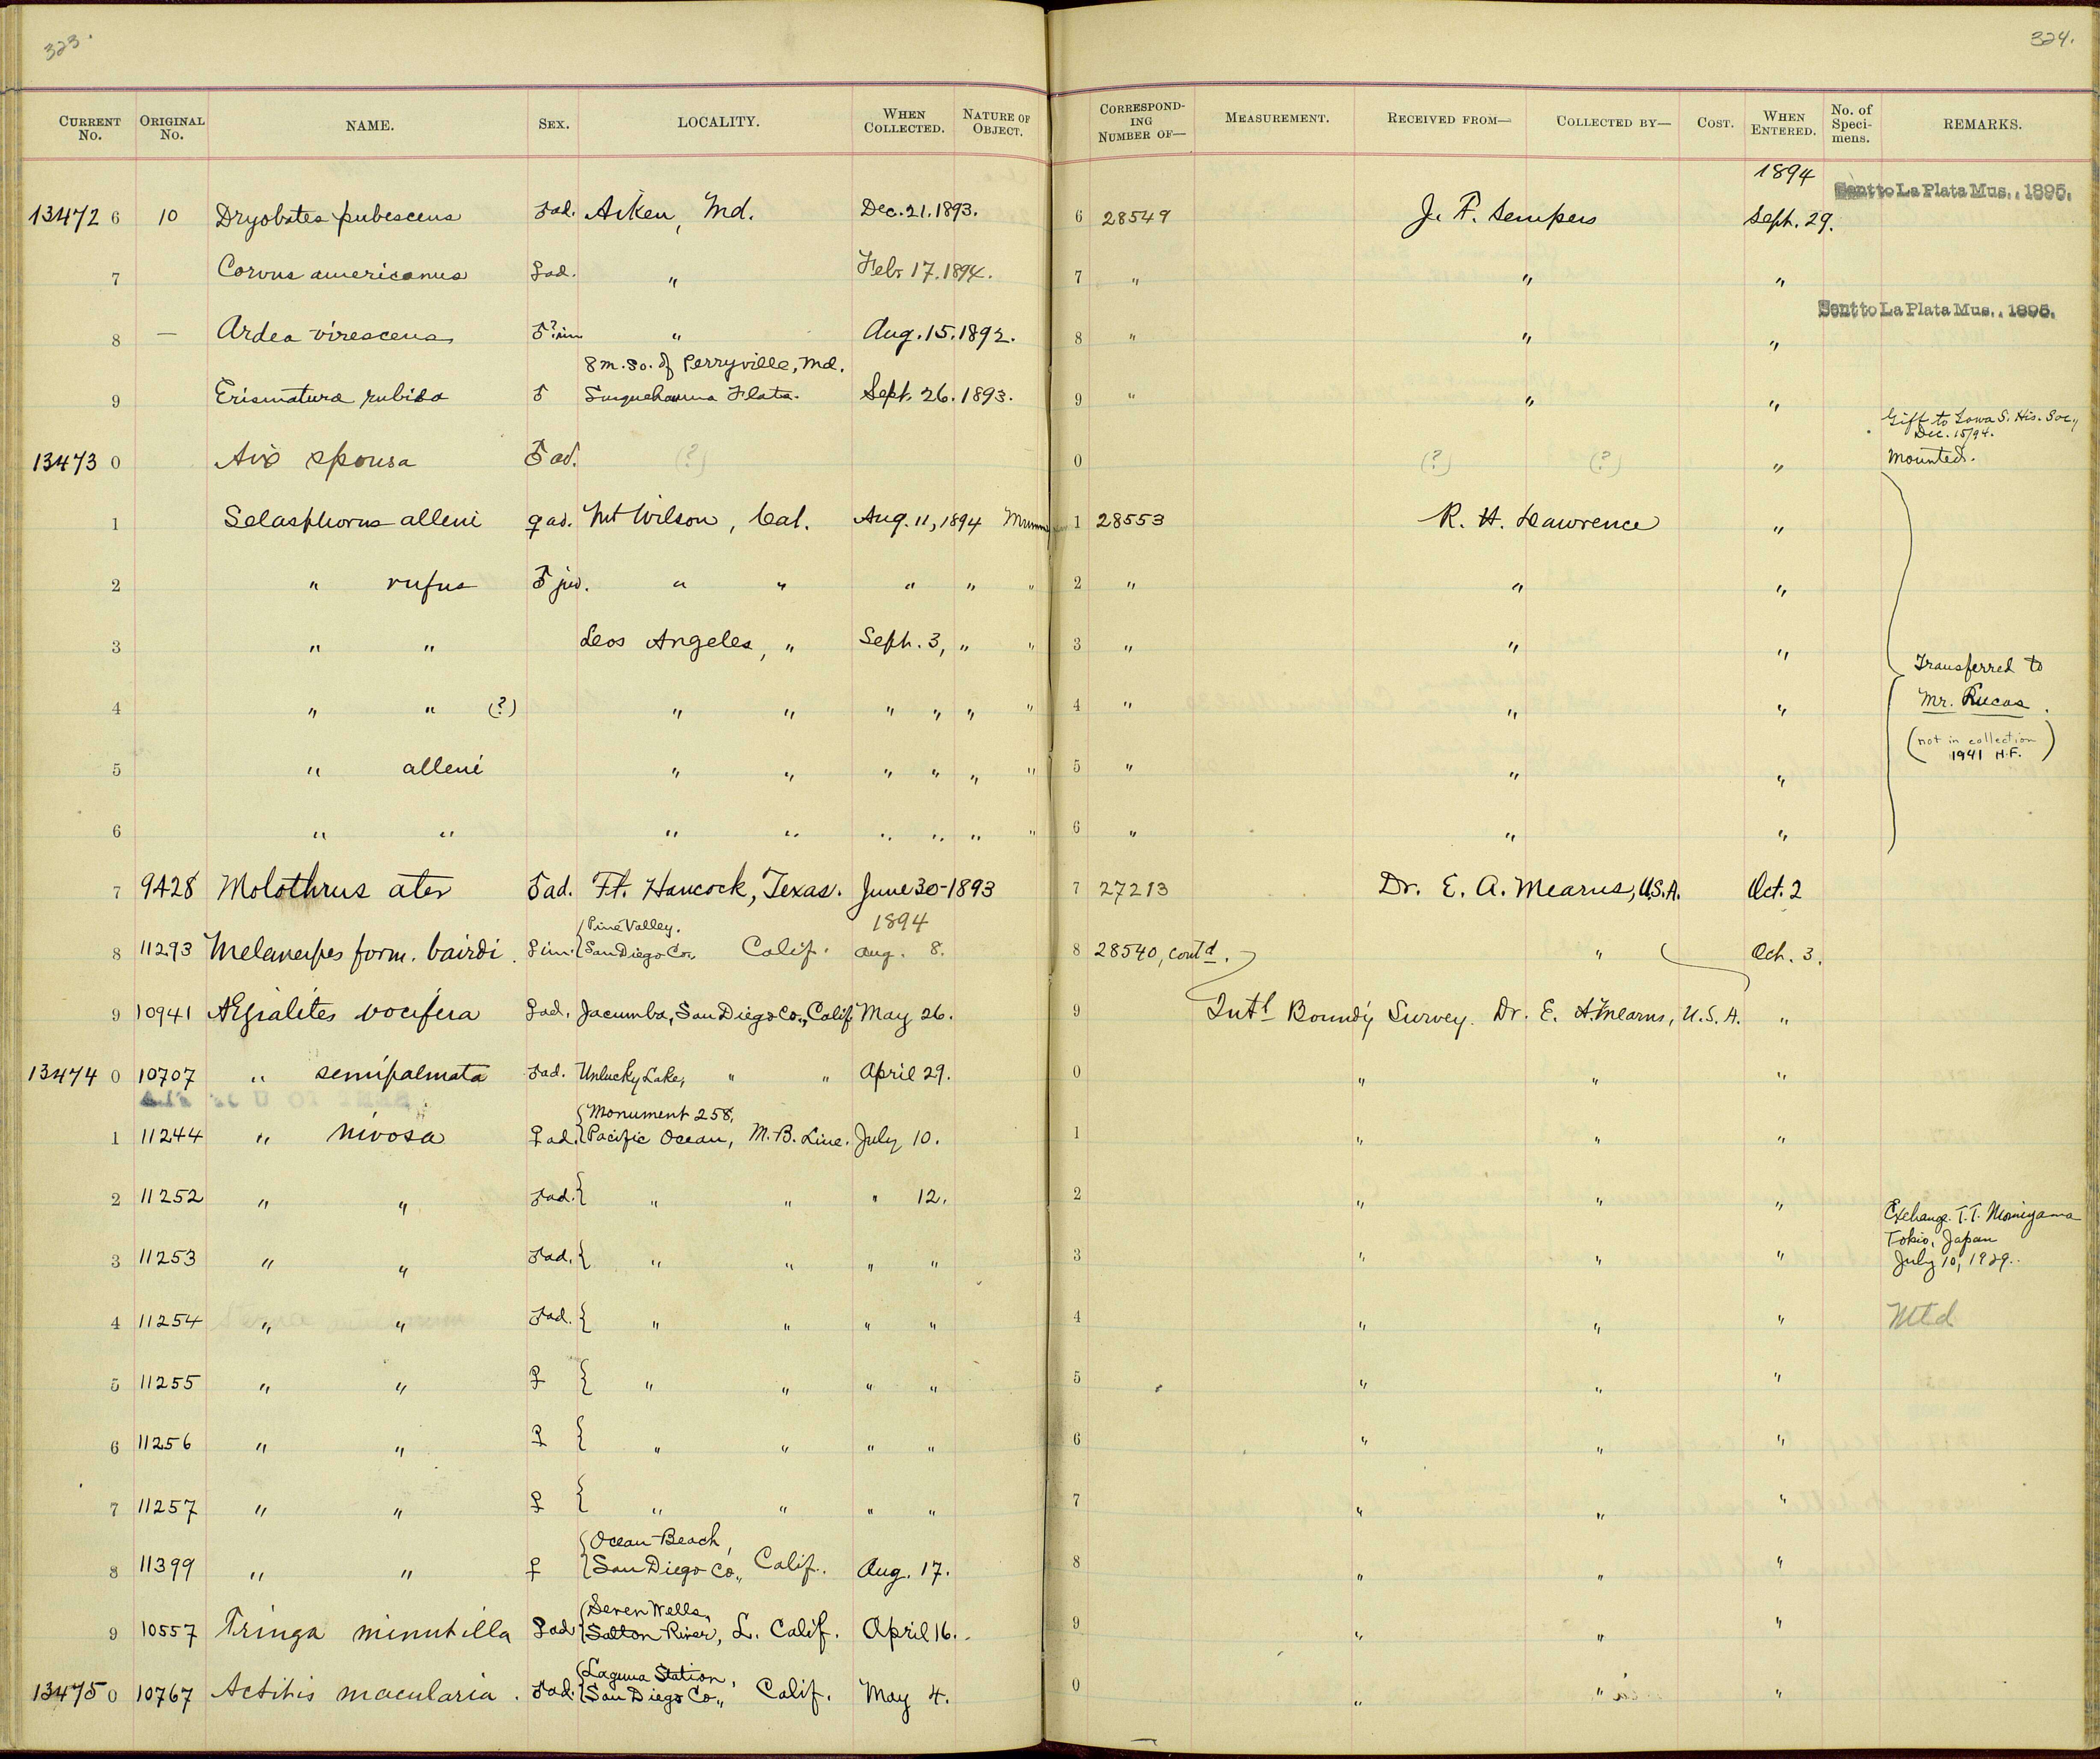 323.
CURRENT No. ORIGINAL No. NAME. SEX. LOCALITY. WHEN COLLECTED. NATURE OF OBJECT.
13472 6 10 Dryobates pubescens ♂ad. Aiken, Md. Dec. 21. 1893.
7 Corvus americanus ♀ad. " Feb. 17. 1894.
8 — Ardea virescens ♂? im " Aug. 15. 1892.
8 m. So. of Perryville, Md.
9 Erismatura rubida ♂ Susquehanna Flats. Sept. 26. 1893.
13473 0 Aix sponsa ♂ ad. (?)
1 Selasphorus alleni ♀ ad. Mt Wilson, Cal. Aug. 11, 1894
2 " rufus ♂ juv. " " " " "
3 " " Los Angeles, " Sept. 3, " "
4 " " (?) " " " " " "
5 " alleni " " " " " "
6 " " " " " " " "
7 9428 Molothrus ater ♂ad. Ft. Hancock, Texas. June 30-1893
8 11293 Melanerpes form. bairdi. ♀im. {Pine Valley. San Diego Co., Calif. 1894 Aug. 8.
9 10941 Ægialites vocifera ♀ad. Jacumba, San Diego Co., Calif May 26.
13474 0 10707 " semipalmata ♂ad. Unlucky Lake, " " April 29.
1 11244 " nivosa ♀ ad. {Monument 258, Pacific Ocean, M.B. Line. July 10.
2 11252 " " ♂ad. { " " " 12.
3 11253 " " ♂ad. { " " " "
4 11254 " " ♂ad. { " " " "
5 11255 " " ♀ { " " " "
6 11256 " " ♀ { " " " "
7 11257 " " ♀ { " " " "
8 11399 " " ♀ {Ocean Beach, San Diego Co., Calif. Aug. 17.
9 10557 Tringa minutilla ♀ad {Seven Wells, Salton River, L. Calif. April 16.
13475 0 10767 Actitis macularia. ♂ad. {Laguna Station, San Diego Co., Calif. May 4.
324.
CORRESPONDING NUMBER OF— MEASUREMENT. RECEIVED FROM— COLLECTED BY— COST. WHEN ENTERED. No. of Specimens. REMARKS.
1894 Sent to La Plata Mus., 1895.
6 28549 J. F. Sempers Sept. 29.
7 " " "
Sent to La Plata Mus., 1895.
8 " " "
9 " " "
Gift to Iowa S. His. Soc.,
Dec. 15/94.
0 (?) (?) " Mounted.
1 28553 R. H. Lawrence "
2 " " "
3 " " "
Transferred to
4 " " " Mr. Lucas.
(not in collection
1941 H.F.)
5 " " "
6 " " "
7 27213 Dr. E. A. Mearns, U.S.A. Oct. 2
8 28540, cont'd. " Oct. 3.
9 Intl Boundy Survey. Dr. E. A. Mearns, U.S.A. "
0 " " "
1 " " "
2 " " "
Exchange. T.T. Momiyama
Tokio, Japan
3 " " " July 10, 1929.
4 " " " Mtd
5 " " "
6 " " "
7 " " "
8 " " "
9 " " "
0 " " "